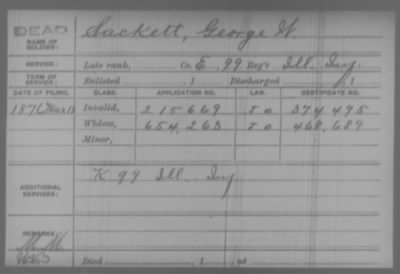 DEAD
NAME OF SOLDIER: Sackett, George W.
SERVICE: Late rank, Co. E. 99 Reg't Ill. Inf.
TERM OF SERVICE: Enlisted , 1 Discharged , 1
DATE OF FILING. CLASS. APPLICATION NO. LAW. CERTIFICATE NO.
1876 Mar 13 Invalid, 215669 374495
Widow, 654,263 468,689
Minor,
ADDITIONAL SERVICES: K 99 Ill. Inf
REMARKS:
Died , 1 , at